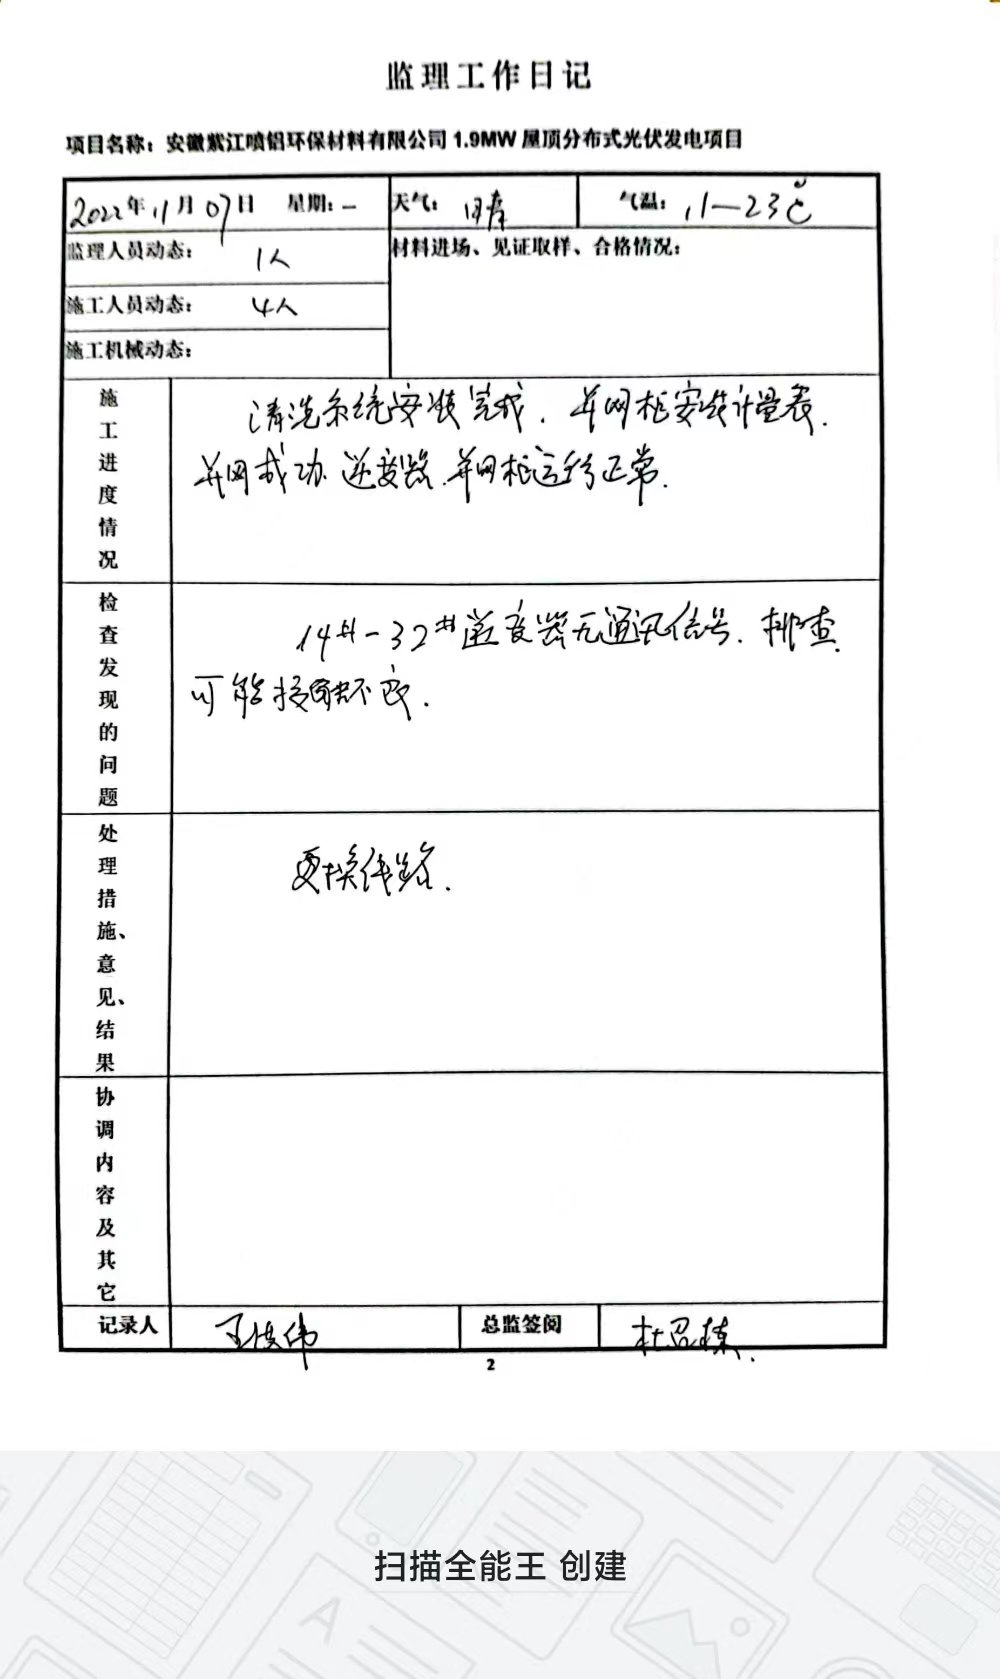 监理工作日记
项目名称：安徽紫江喷铝环保材料有限公司1.9MW屋顶分布式光伏发电项目
2022年11月07日 星期：一 天气：晴 气温：11—23℃
监理人员动态： 1人 材料进场、见证取样、合格情况：
施工人员动态： 4人
施工机械动态：
施工进度情况
清洗系统安装完成．并网柜安装计量表．
并网成功．逆变器．并网柜运行正常．
检查发现的问题
14#-32#逆变器无通讯信号．排查
可能接触不良．
处理措施、意见、结果
更换线路．
协调内容及其它
记录人 王俊伟 总监签阅
2
扫描全能王 创建